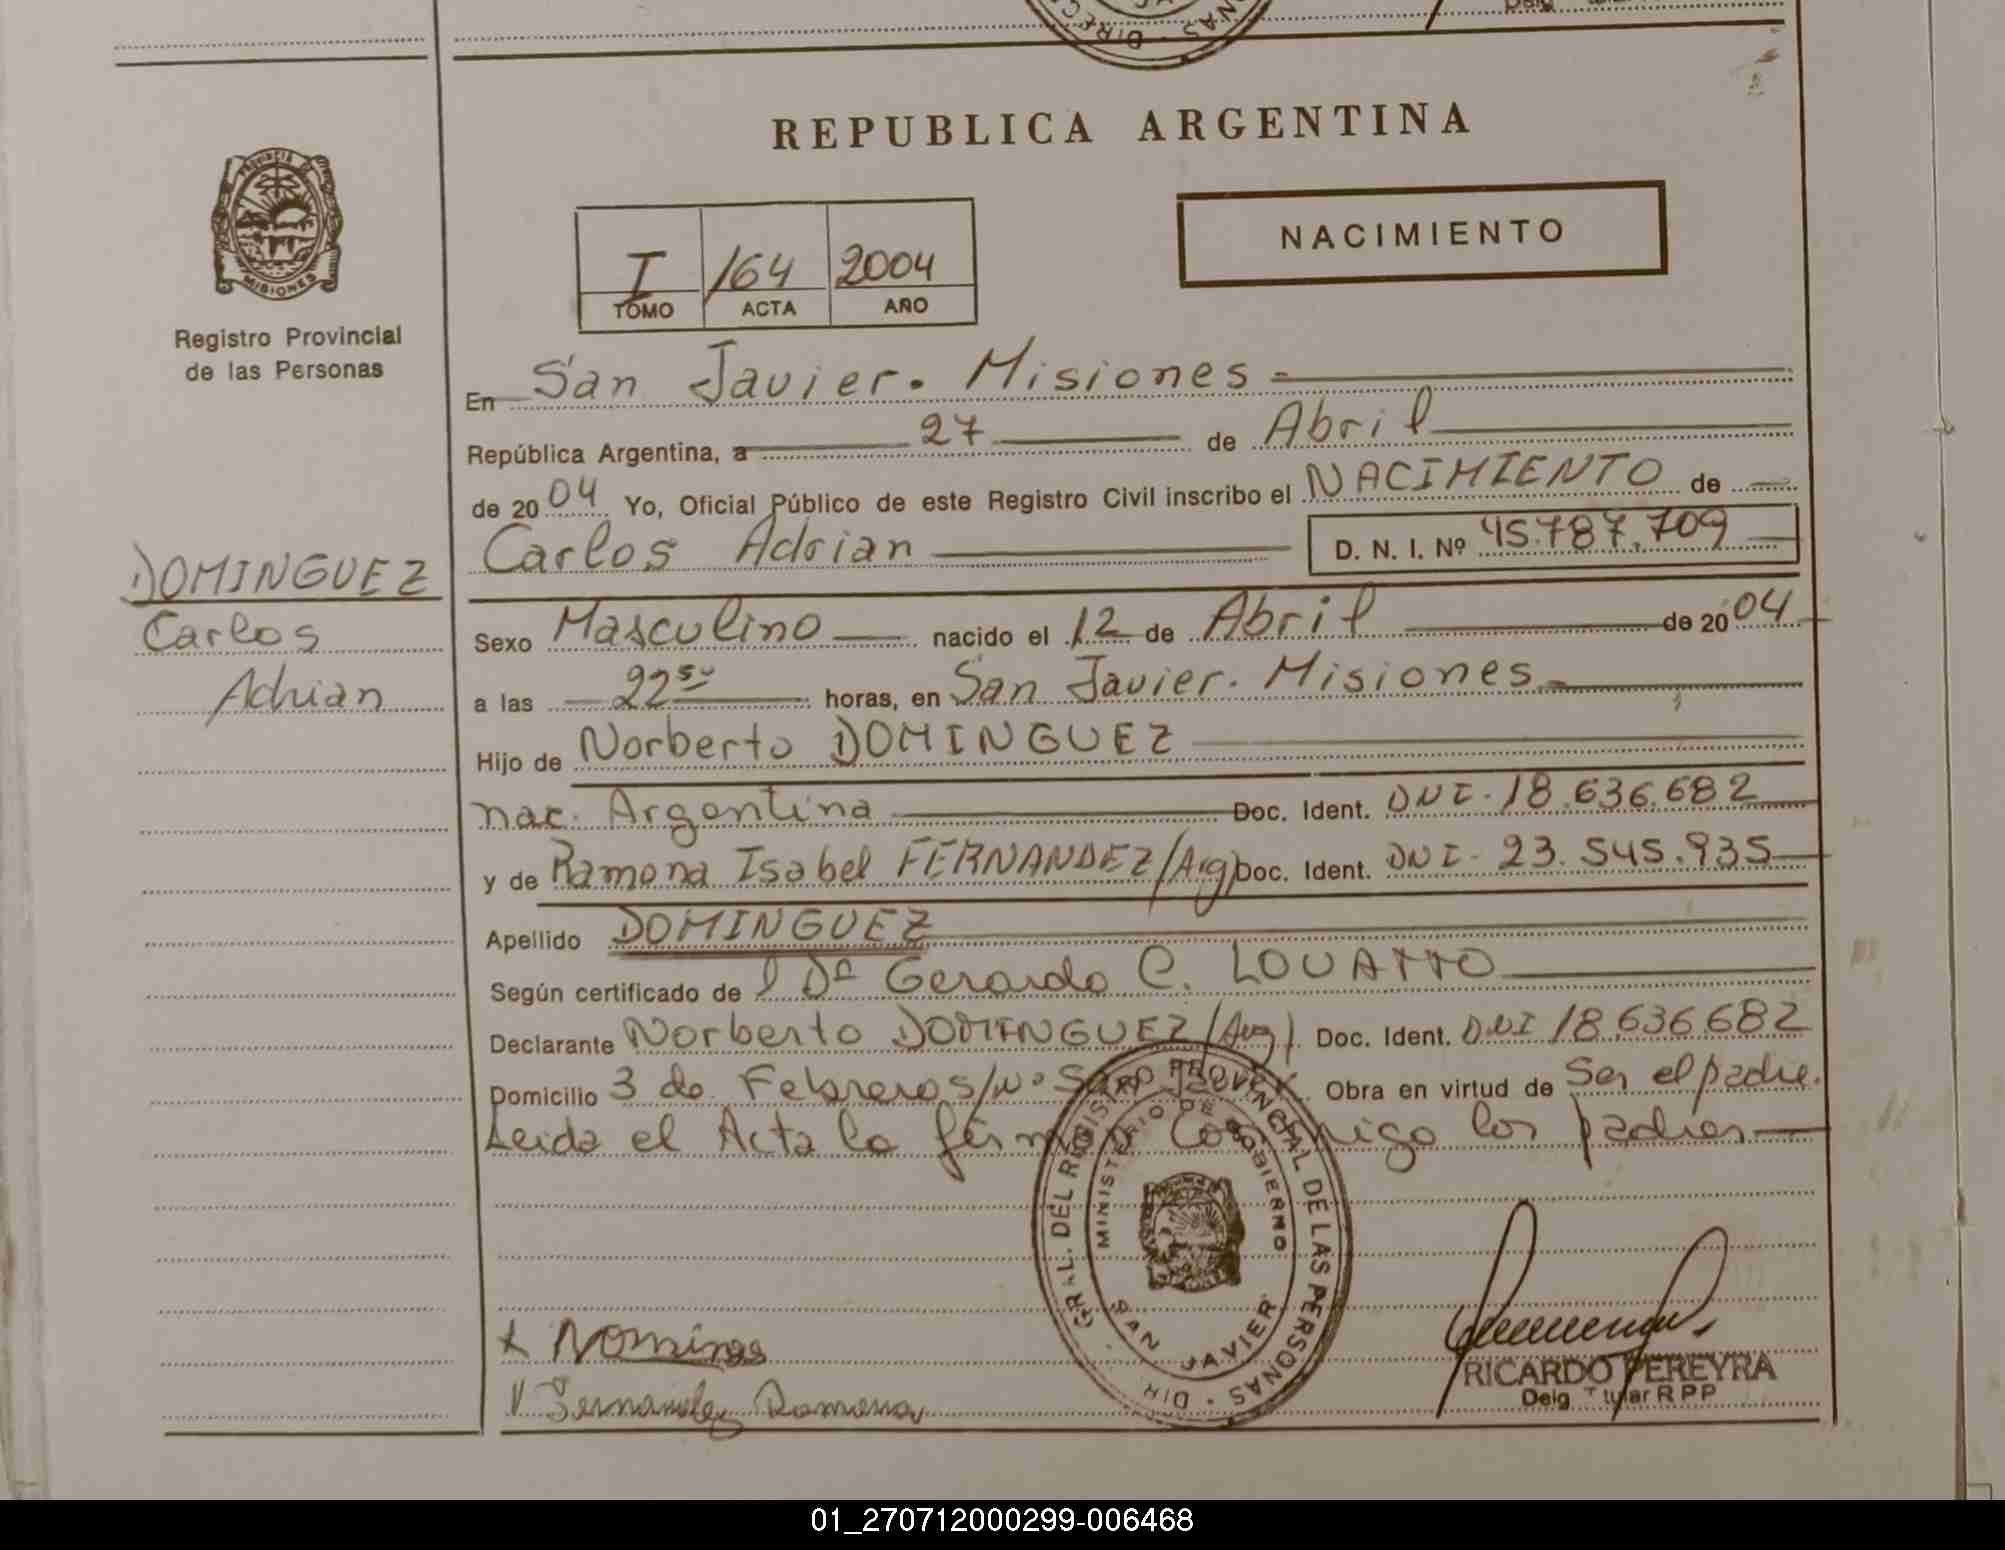 REPUBLICA ARGENTINA
PROVINCIA DE
MISIONES
Registro Provincial
de las Personas
NACIMIENTO
I 164 2004
TOMO ACTA AÑO
En San Javier. Misiones
República Argentina, a 27 de Abril
de 2004 Yo, Oficial Público de este Registro Civil inscribo el NACIMIENTO de
Carlos Adrian D. N. I. Nº 45.787.709
DOMINGUEZ
Carlos
Adrian
Sexo Masculino nacido el 12 de Abril de 2004
a las 22⁵⁰ horas, en San Javier. Misiones
Hijo de Norberto DOMINGUEZ
nac. Argentina Doc. Ident. DNI. 18.636.682
y de Ramona Isabel FERNANDEZ/(Arg) Doc. Ident. DNI. 23.545.935
Apellido DOMINGUEZ
Según certificado de l Dr Gerardo C. LOVATTO
Declarante Norberto DOMINGUEZ/(Arg) Doc. Ident. DNI 18.636.682
Domicilio 3 de Febrero s/nº San Javier Obra en virtud de Ser el padre.
Leida el Acta la firman conmigo los padres
DIR. GRAL. DEL REGISTRO PROVINCIAL DE LAS PERSONAS
MINISTERIO DE GOBIERNO
SAN JAVIER
Fernandez Ramona
RICARDO PEREYRA
Delg Titular R P P
01_270712000299-006468